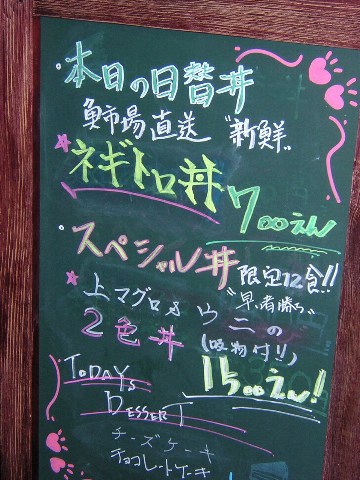 ・本日の日替丼
魚市場直送 "新鮮"
★ネギトロ丼
700えん
・スペシャル丼
限定12食!!
"早い者勝ち"
★上マグロ&ウニの
2色丼 (吸物付!!)
1500えん!
TODAYS
DESSERT
チーズケーキ
チョコレートケーキ